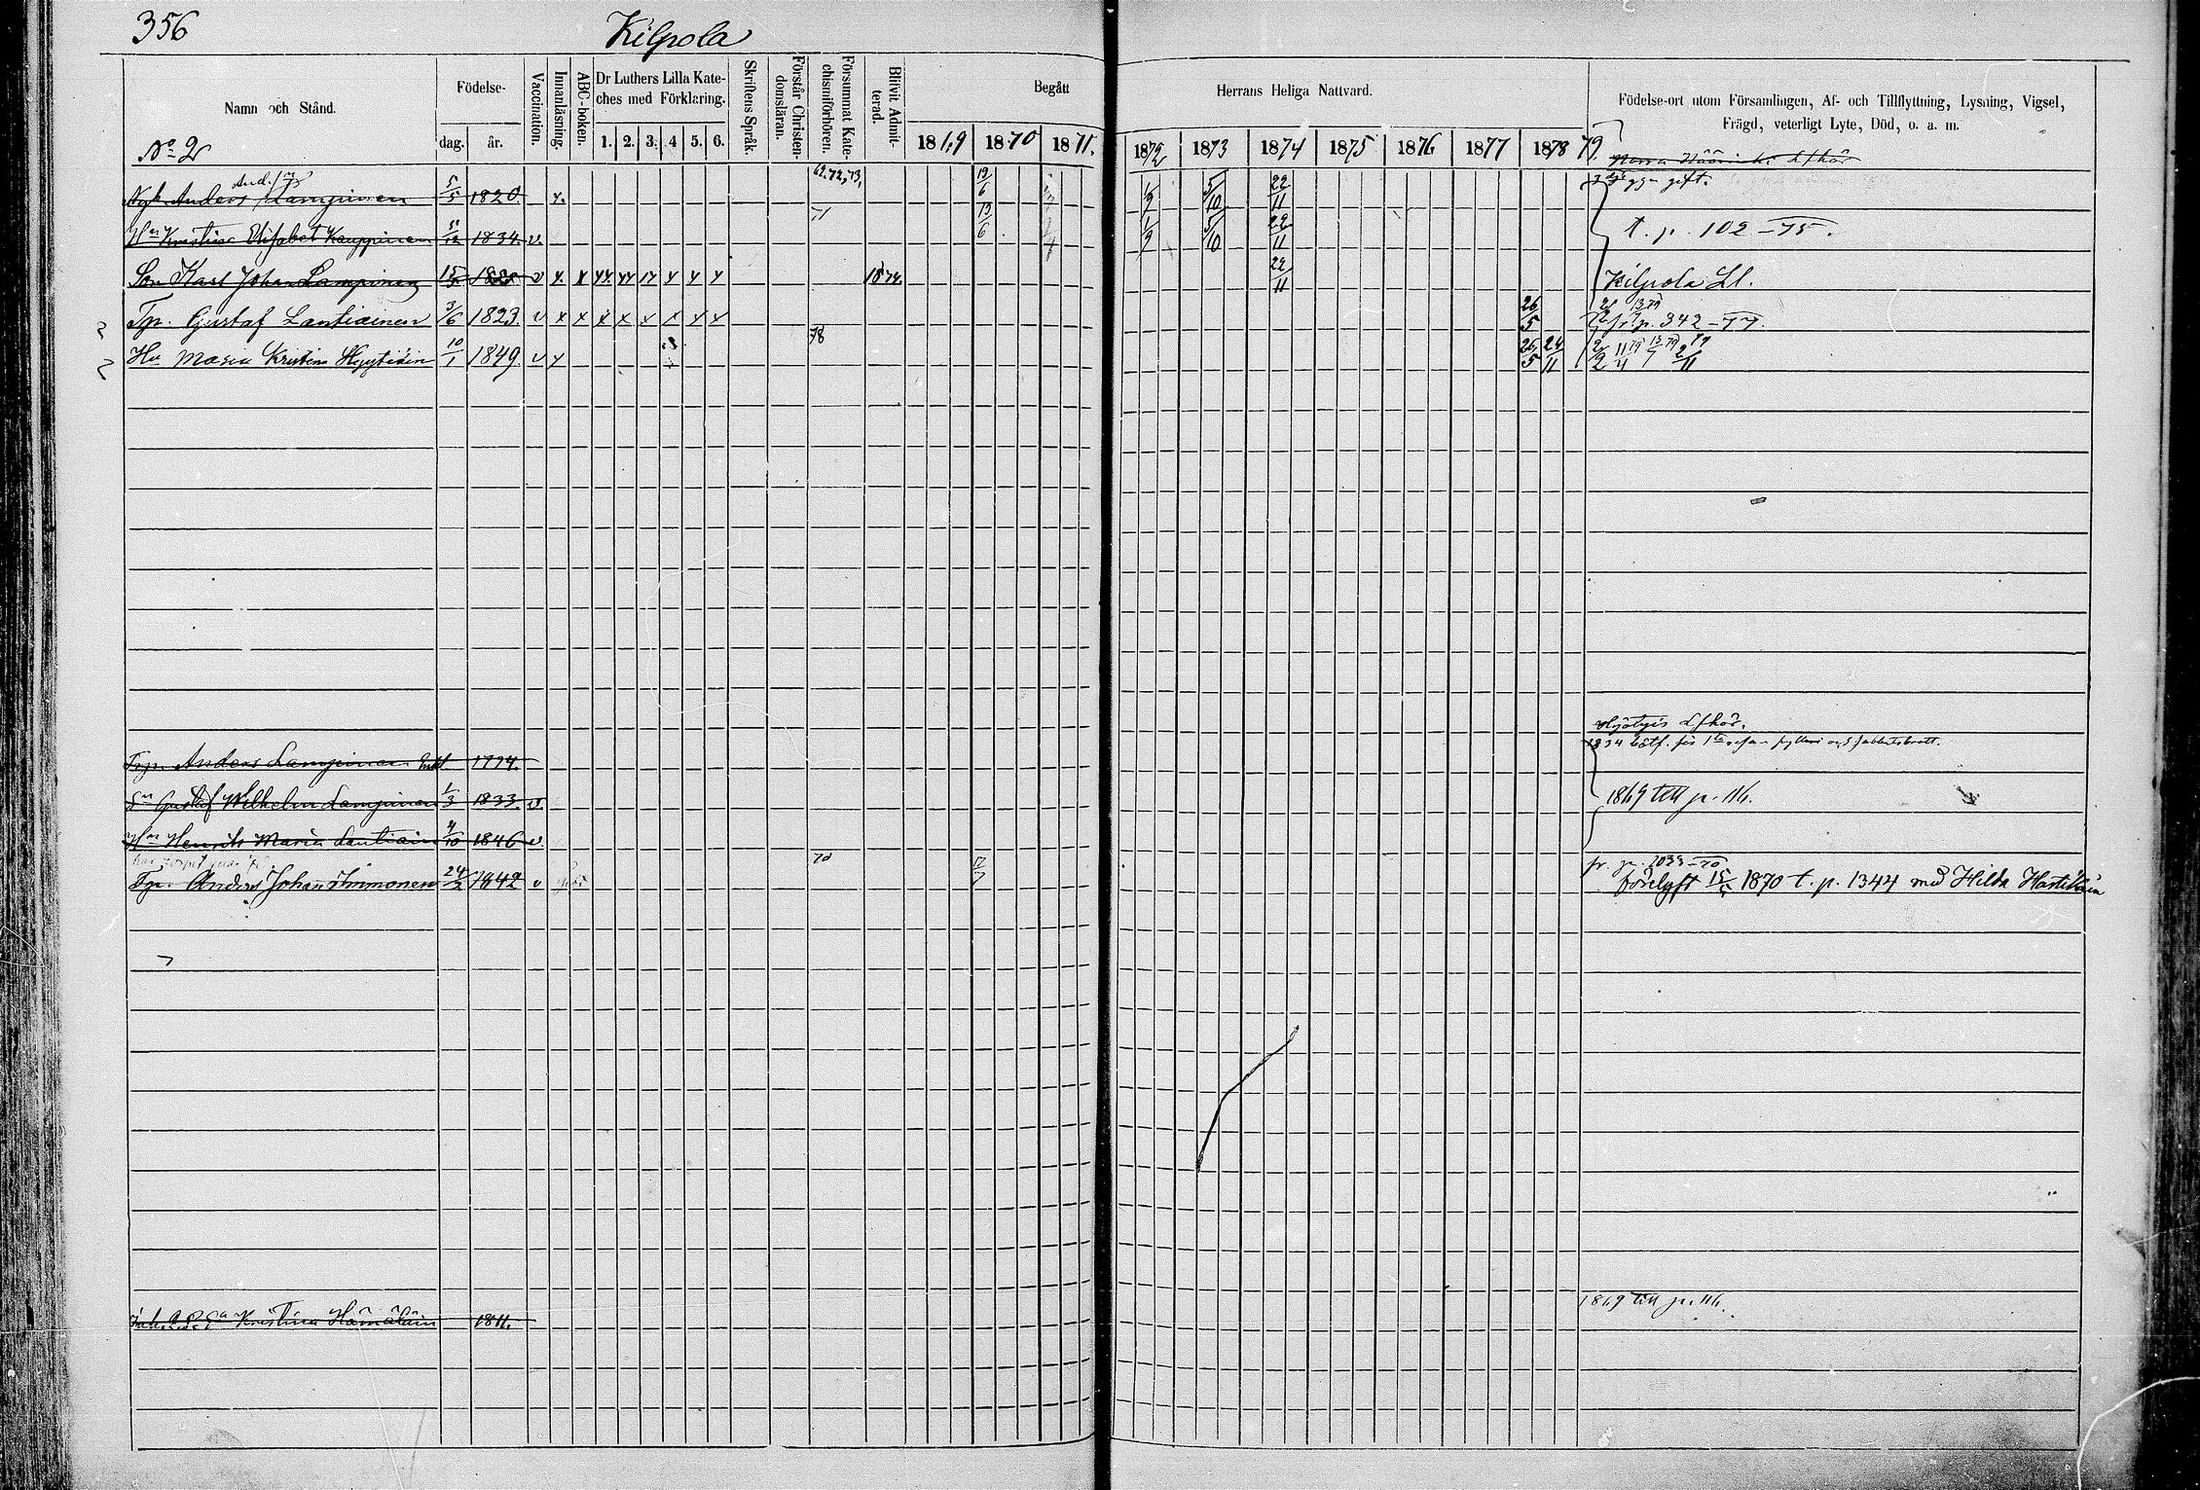 356
Kilpola
Namn och Stånd.
Födelse-
dag.
år.
Vaccination.
Innanläsning.
ABC-boken.
Dr Luthers Lilla Kate-
ches med Förklaring.
1. 2. 3. 4 5. 6.
Skriftens Språk.
Förstår Christen-
domsläran.
Försummat Kate-
chismiförhören.
Blifvit Admit-
terad.
Begått
Herrans Heliga Nattvard.
1869 1870 1871.
1872 1873 1874 1875 1876 1877 1878 79.
Födelse-ort utom Församlingen, Af- och Tillflyttning, Lysning, Vigsel,
Frägd, veterligt Lyte, Död, o. a. m.
No 2
Anders Lampinen 5/5 1820 x. 69.72,73, 19/6 1/9 5/10 22/11 3 ggr gift.
Hu Kristina Elisabet Kauppinen 1834. v. 71 19/6 1/9 5/10 22/11 t. p. 102 - 75.
Son Karl Johan Lampinen v x. x xx xx x x x 1874. 22/11 Kilpola Ll.
Tp. Gustaf Lantiainen 3/6 1823. v x x x x x x x x 26/5 fr. p. 342 - 77.
Hu Maria Kristina 10/1 1849. v x 78 26/5 24/11
Tp. Anders Lampinen Enkl 1794.
Sn Gustaf Wilhelm Lampinen 1/3 1833. v. 1869 till p. 116.
Hu Maria Lantiain 4/10 1846 v
Tp. Anders Johan Immonen 24/2 1842 v 70 17/7 fr. p. 1033 - 70
1870 t. p. 1344 med Hilda
Kristina Hämäläin 1811. 1869 till p. 116.